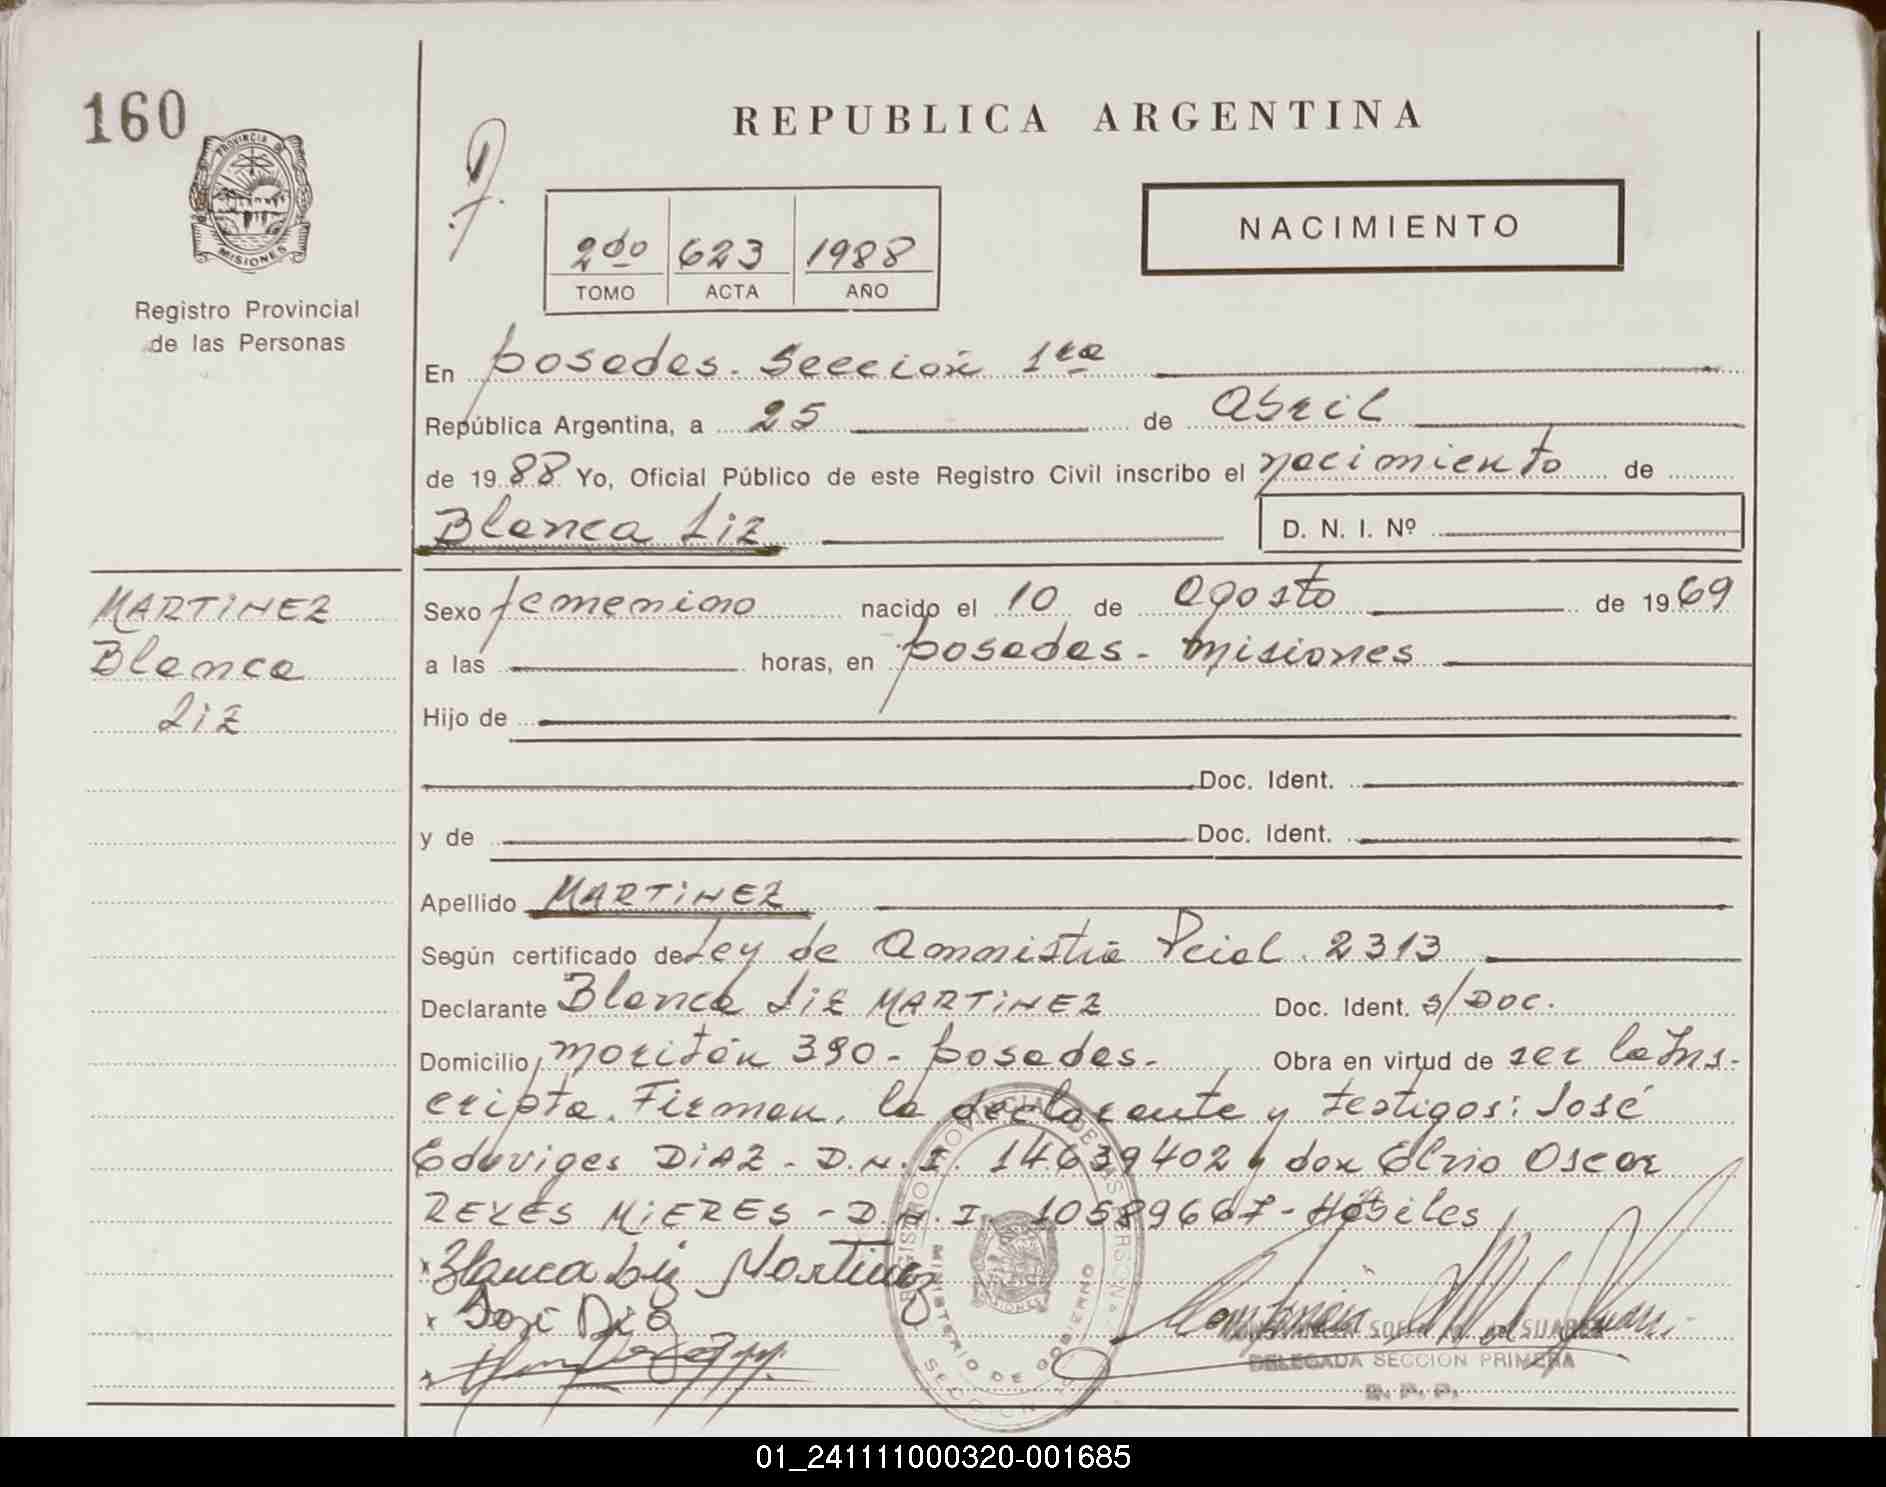 160
REPUBLICA ARGENTINA
PROVINCIA DE
MISIONES
Registro Provincial
de las Personas
2do 623 1988
TOMO ACTA AÑO
NACIMIENTO
En posadas. Sección 1ra
República Argentina, a 25 de Abril
de 1988 Yo, Oficial Público de este Registro Civil inscribo el nacimiento de
Blanca Liz D. N. I. Nº
MARTINEZ
Blanca
Liz
Sexo femenino nacido el 10 de Agosto de 1969
a las horas, en posadas - misiones
Hijo de
Doc. Ident.
y de Doc. Ident.
Apellido MARTINEZ
Según certificado de Ley de Amnistia Pcial. 2313
Declarante Blanca Liz MARTINEZ Doc. Ident. s/Doc.
Domicilio, moritán 390 - posadas - Obra en virtud de ser la Ins-
cripta. Firman, la declarante y testigos: José
Eduviges DIAZ - D.N.I. 14639402 y don Elvio Oscar
REYES MIERES - D.N.I. 10589667 - Hábiles
x Blanca Liz Martinez
x José Diaz
DELEGADA SECCION PRIMERA
R. P. P.
01_241111000320-001685